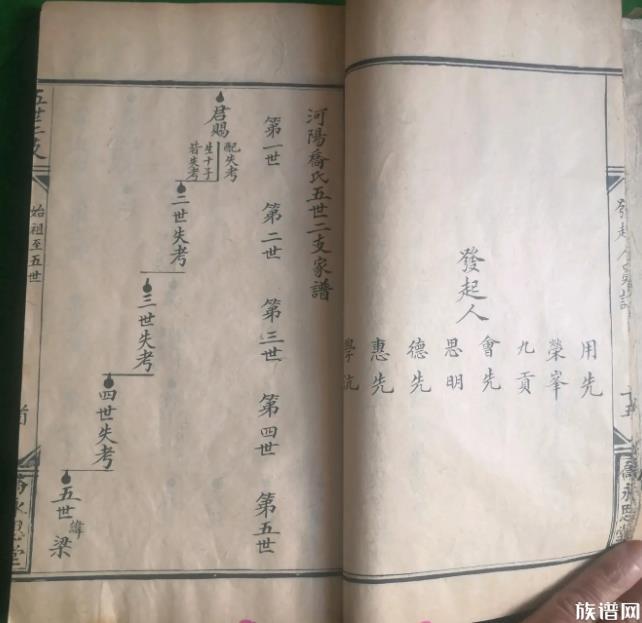 發起人
用先
榮峯
九貢
會先
思明
德先
惠先
河陽喬氏五世二支家譜
第一世
第二世
第三世
第四世
第五世
君賜
配失考
生十子
皆失考
三世失考
三世失考
四世失考
五世 緯 梁
五世二支
始祖至五世
族谱网